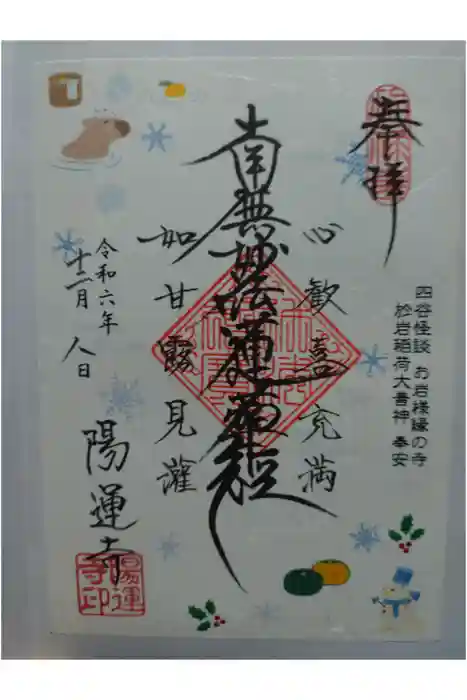 奉拝
四谷怪談 お岩様縁の寺
於岩稲荷大善神 奉安
心歓喜充満
南無妙法蓮華経
如甘露見灌
令和六年
十二月 八日
陽運寺
陽運
寺印